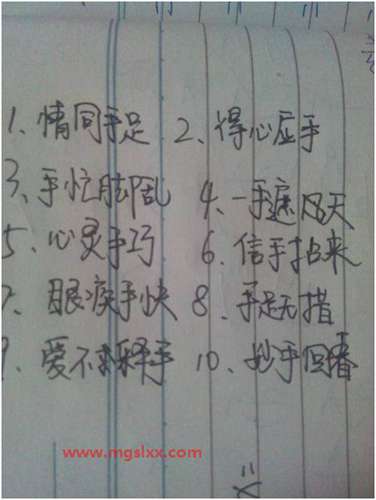 1、情同手足 2、得心应手
3、手忙脚乱 4、一手遮天
5、心灵手巧 6、信手拈来
7、眼疾手快 8、手足无措
9、爱不释手 10、妙手回春
www.mgslxx.com